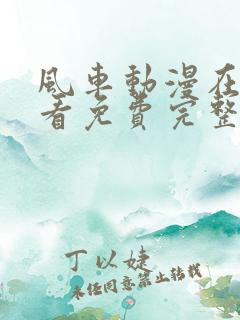 風車動漫在
看免費完整
丁以婕
未经同意禁止转载